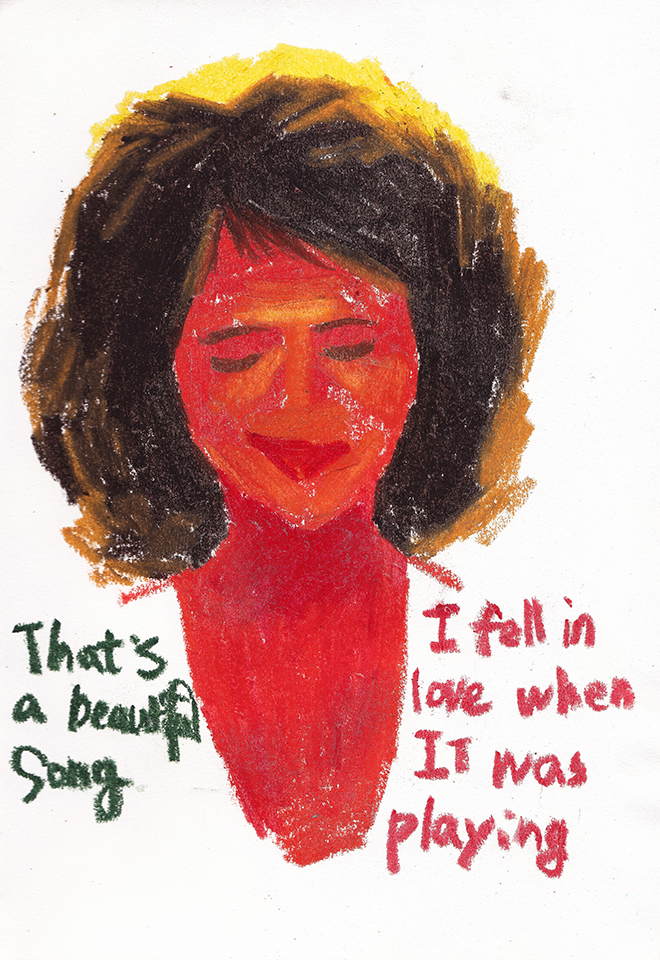 That's
a beautiful
Song
I fell in
love when
IT was
playing